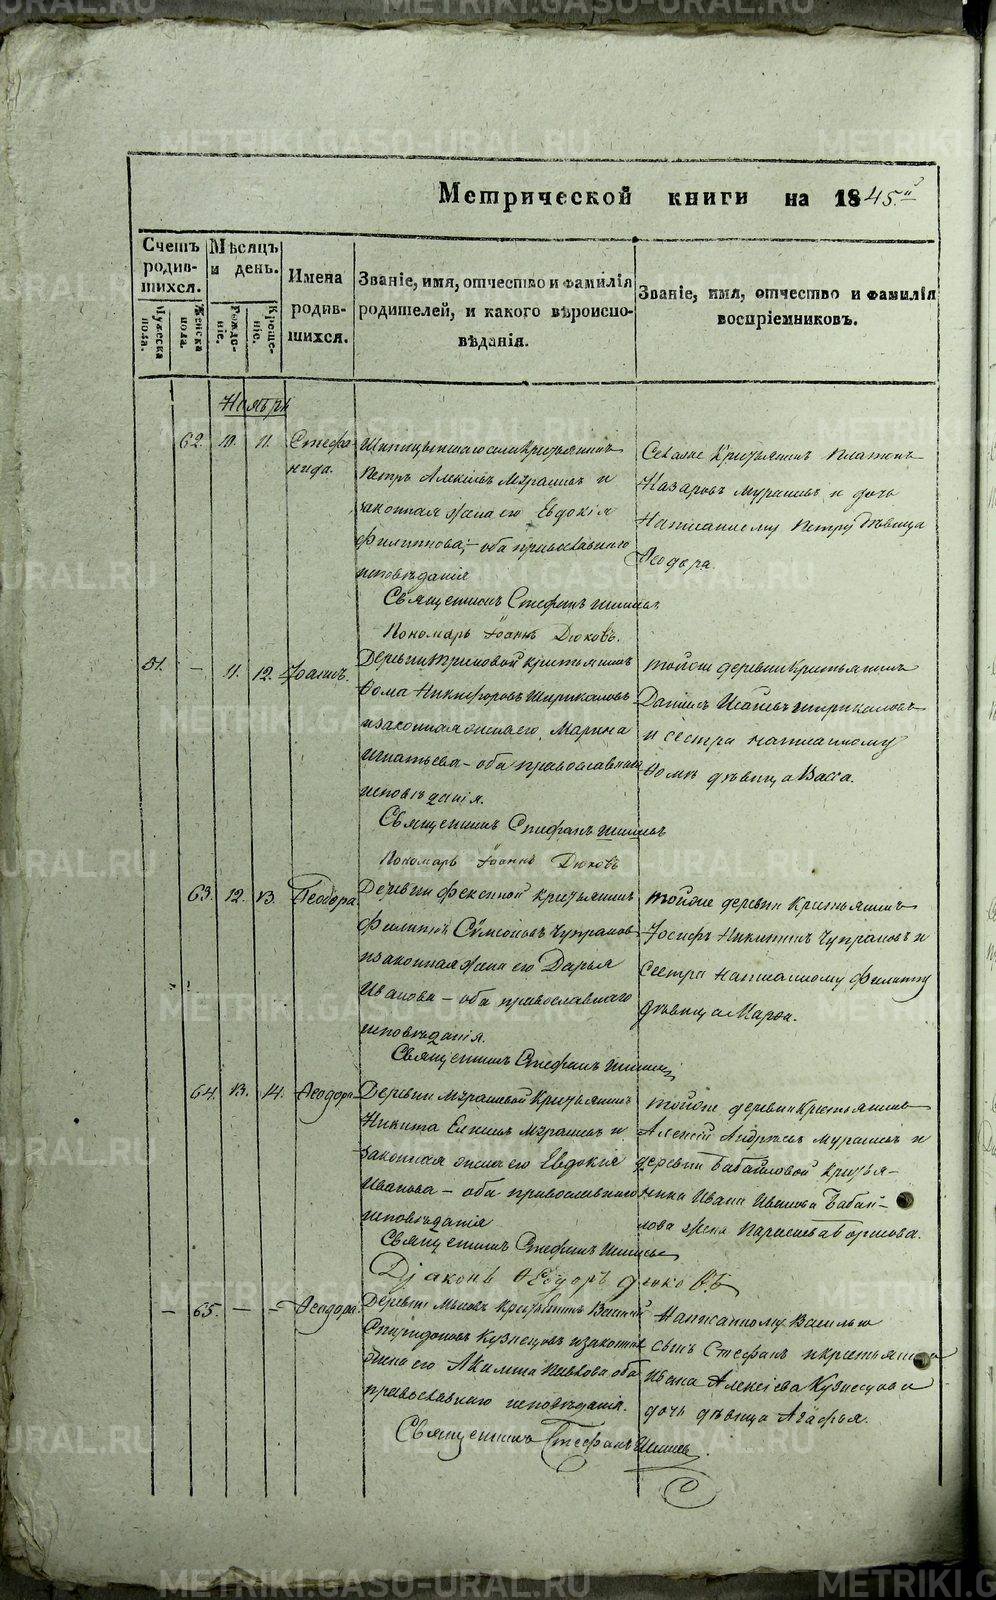 METRIKI.GASO-URAL.RU
Метрической книги на 1845й
Счетъ родив-шихся.
Мужеска пола.
Женска пола.
Мѣсяцъ и день.
Рожде-ніе.
Креще-ніе.
Имена родив-шихся.
Званіе, имя, отчество и фамилія родителей, и какого вѣроиспо-вѣданія.
Званіе, имя, отчество и фамилія воспріемниковъ.
Ноябрь
62. 10. 11. Стефа-нида.
села Крестьянинъ
Петръ Алексѣевъ Мурашевъ и
законная жена его Евдокія
Филиппова, – оба православнаго
исповѣданія
Священникъ Стефанъ
Пономарь Іоаннъ Дюковъ.
Крестьянинъ Платонъ
Назаровъ Мурашевъ и дочь
Написанному Петру дѣвица
Ѳеодора.
51. – 11. 12. Іоаннъ.
Деревни Крестьянинъ
Ѳома Никифоровъ Ширикаловъ
и законная жена его, Марина
Игнатьева – оба православнаго
исповѣданія.
Священникъ Стефанъ
Пономарь Іоаннъ Дюковъ
Тойже деревни Крестьянинъ
Даніилъ Исаевъ Ширикаловъ
и сестра написанному
Ѳомѣ дѣвица Васса.
63. 12. 13. Ѳеодора
Деревни Крестьянинъ
Филиппъ Сѵмеоновъ Чупраковъ
и законная жена его Дарья
Иванова – оба православнаго
исповѣданія.
Священникъ Стефанъ
Тойже деревни Крестьянинъ
Іосифъ Никитинъ Чупраковъ и
сестра написанному Филиппу
дѣвица Марѳа.
64. 13. 14. Ѳеодора
Деревни Мурашевой Крестьянинъ
Никита Мурашевъ и
законная жена его Евдокія
Иванова – оба православнаго
исповѣданія
Священникъ Стефанъ
Діаконъ Ѳеодоръ Дюковъ
Тойже деревни Крестьянинъ
Алексій Андреевъ Мурашевъ и
деревни Бабайловой Кресья-
нина Ивана Иванова Бабай-
лова жена Борисова.
– 65. – – Ѳеодора.
Деревни Крестьянинъ Василій
Спиридоновъ Кузнецовъ и законная
жена его оба
православнаго исповѣданія.
Священникъ Стефанъ
Написанному Василью
сынъ Стефанъ и крестьянина
Ивана Алексіева Кузнецова
дочь дѣвица Агафья.